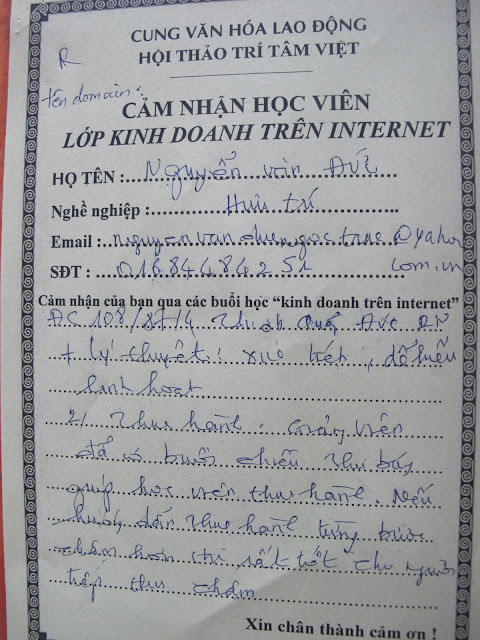 CUNG VĂN HÓA LAO ĐỘNG
HỘI THẢO TRÍ TÂM VIỆT
R
tên domain:
CẢM NHẬN HỌC VIÊN
LỚP KINH DOANH TRÊN INTERNET
HỌ TÊN : Nguyễn văn Đức
Nghề nghiệp : Hưu trí
Email : @yahoo
SĐT : 01684484251 com.vn
Cảm nhận của bạn qua các buổi học “kinh doanh trên internet”
ĐC 108/87/4
+ Lý thuyết: , dễ hiểu
linh hoạt
2/ Thực hành: Giảng viên
đã có buổi chiều thứ bảy
giúp học viên thực hành. Nếu
hướng dẫn thực hành từng bước
chậm hơn thì rất tốt cho người
tiếp thu chậm
Xin chân thành cảm ơn !